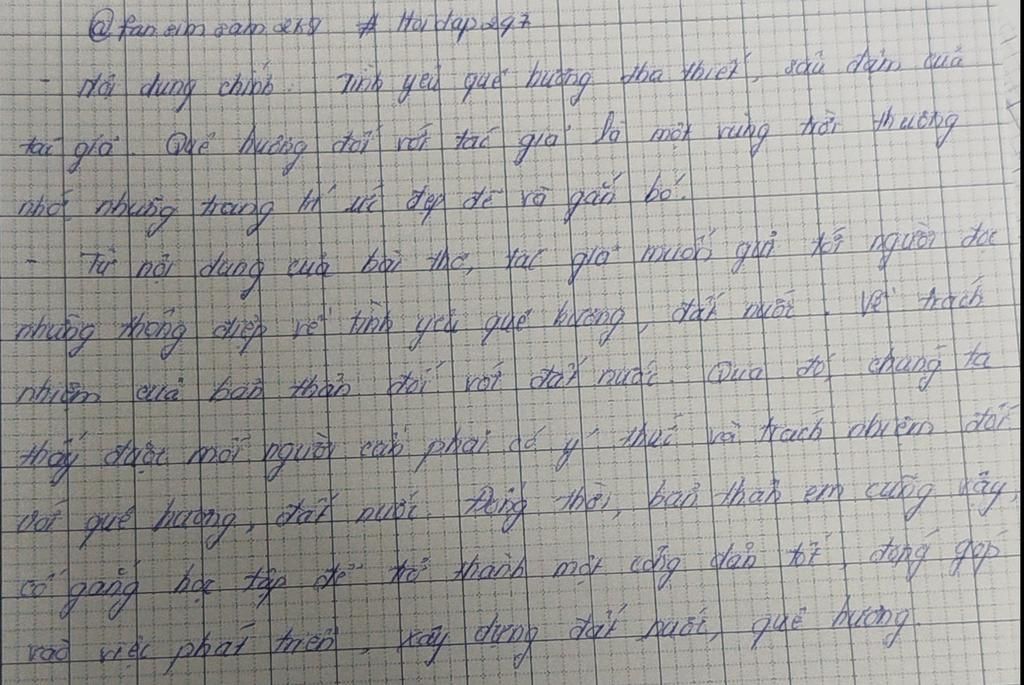 @fan sim sam 2k8 # Hoidap247
- Nội dung chính: Tình yêu quê hương tha thiết, sâu đậm của
tác giả. Quê hương đối với tác giả là một vùng trời thương
nhớ, những trang kí ức đẹp đẽ và gắn bó.
- Từ nội dung của bài thơ, tác giả muốn gửi tới người đọc
những thông điệp về tình yêu quê hương, đất nước. Về trách
nhiệm của bản thân đối với đất nước. Qua đó, chúng ta
thấy được mỗi người cần phải có ý thức và trách nhiệm đối
với quê hương, đất nước. Đồng thời, bản thân em cũng vậy,
cố gắng học tập để trở thành một công dân tốt, đóng góp
vào việc phát triển, xây dựng đất nước, quê hương.